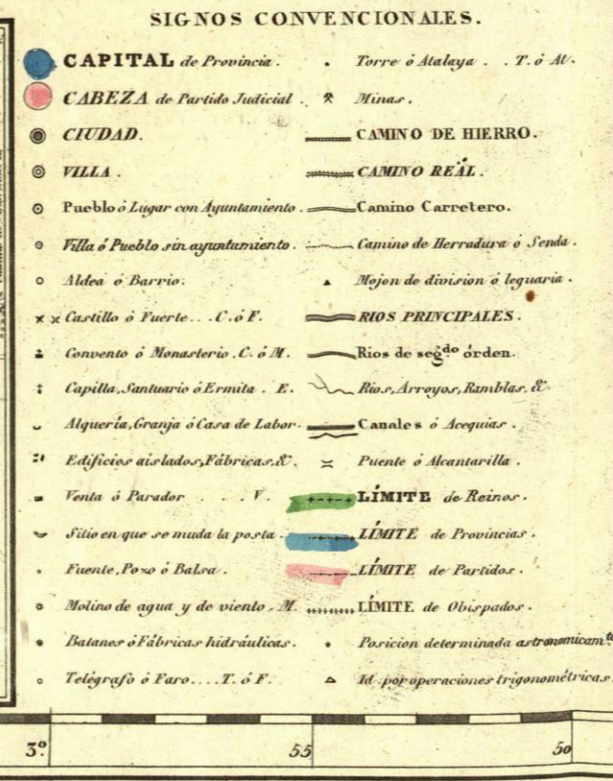 SIGNOS CONVENCIONALES.
CAPITAL de Provincia.
CABEZA de Partido Judicial.
CIUDAD.
VILLA.
Pueblo ó Lugar con Ayuntamiento.
Villa ó Pueblo sin ayuntamiento.
Aldea ó Barrio.
Castillo ó Fuerte... C. ó F.
Convento ó Monasterio. C. ó M.
Capilla, Santuario ó Ermita. E.
Alquería, Granja ó Casa de Labor.
Edificios aislados, Fábricas, &.
Venta ó Parador . . . V.
Sitio en que se muda la posta.
Fuente, Pozo ó Balsa.
Molino de agua y de viento. M.
Batanes ó Fábricas hidráulicas.
Telégrafo ó Faro.... T. ó F.
Torre ó Atalaya . . T. ó At.
Minas.
CAMINO DE HIERRO.
CAMINO REÁL.
Camino Carretero.
Camino de Herradura ó Senda.
Mojon de division ó leguaria.
RIOS PRINCIPALES.
Rios de segdo órden.
Rios, Arroyos, Ramblas, &.
Canales ó Acequias.
Puente ó Alcantarilla.
LÍMITE de Reinos.
LÍMITE de Provincias.
LÍMITE de Partidos.
LÍMITE de Obispados.
Posicion determinada astronomicamte
Id. por operaciones trigonométricas.
3º 55 50